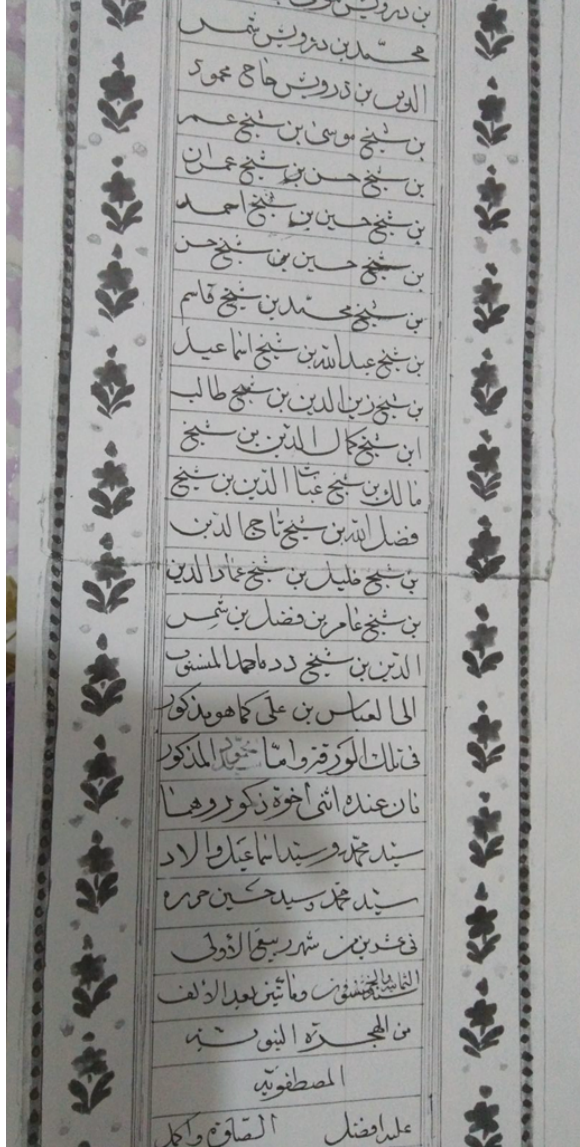 بن درويش
محمد بن درويش شمس
الدين بن درويش حاج محمود
بن شيخ موسى بن شيخ عمر
بن شيخ حسن بن شيخ عمران
بن شيخ حسين بن شيخ احمد
بن شيخ حسين بن شيخ حسن
بن شيخ محمد بن شيخ قاسم
بن شيخ عبد الله بن شيخ اسماعيل
بن شيخ زين الدين بن شيخ طالب
ابن شيخ كمال الدين بن شيخ
مالك بن شيخ الدين بن شيخ
فضل الله بن شيخ تاج الدين
بن شيخ خليل بن شيخ عماد الدين
بن شيخ عامر بن فضل بن شمس
الدين بن شيخ المنسوب
الى العباس بن علي كما هو مذكور
في تلك الورقة واما المذكور
فان عنده اثنى اخوة ذكور وهما
سيد محمد وسيد اسماعيل والاد
سيد محمد وسيد حسين حرره
في عشرين من شهر ربيع الأولى
ومأتين بعد الالف
من الهجرة النبوية
المصطفوية
عليه افضل الصلوة واكمل